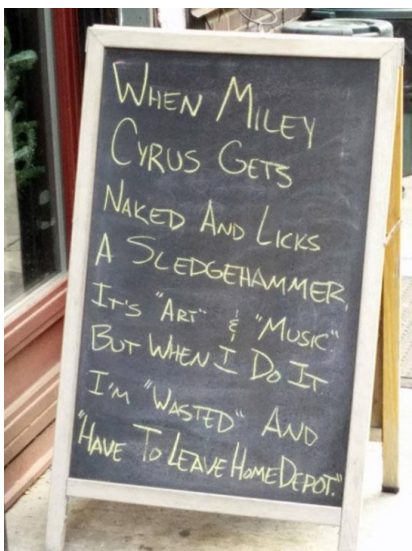 WHEN MILEY
CYRUS GETS
NAKED AND LICKS
A SLEDGEHAMMER,
IT'S "ART" & "MUSIC"
BUT WHEN I DO IT
I'M "WASTED" AND
"HAVE TO LEAVE HOME DEPOT."